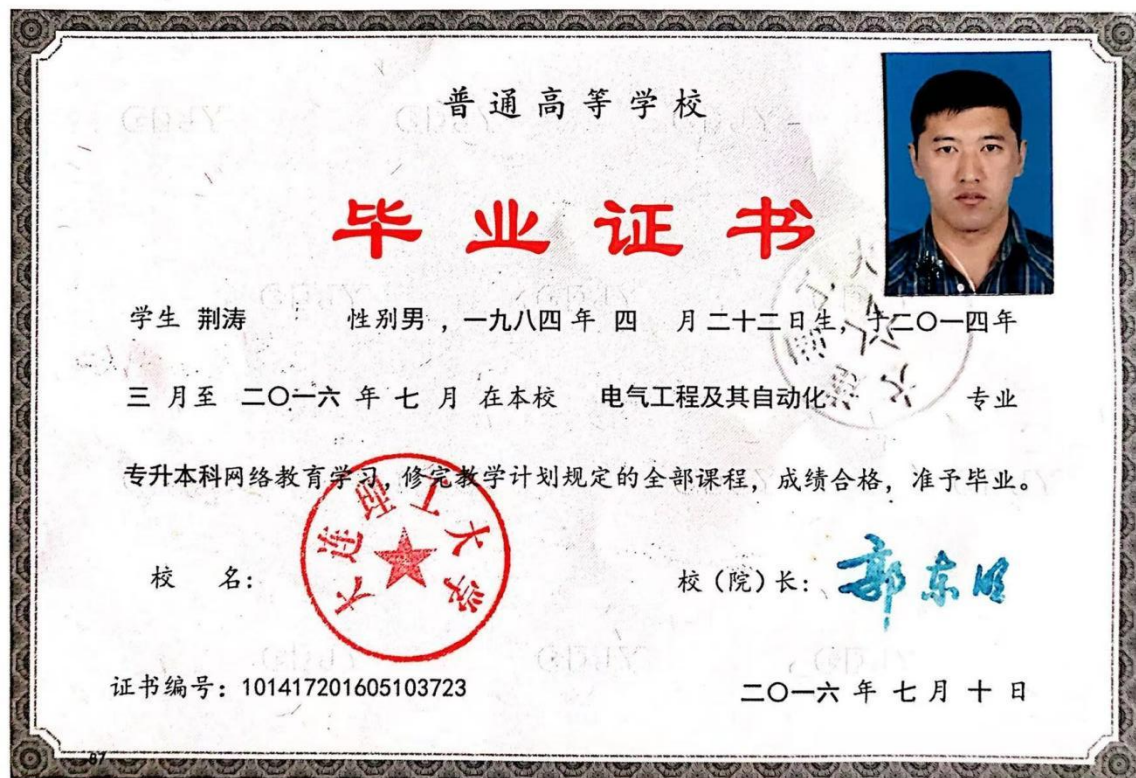 普通高等学校
毕业证书
学生 荆涛 性别男 ，一九八四 年 四 月 二十二日生，于二〇一四年
三 月至 二〇一六 年 七 月 在本校 电气工程及其自动化 专业
专升本科网络教育学习，修完教学计划规定的全部课程，成绩合格，准予毕业。
大连理工大学
校 名：
校（院）长：郭东明
证书编号：101417201605103723
二〇一六 年 七 月 十 日
87